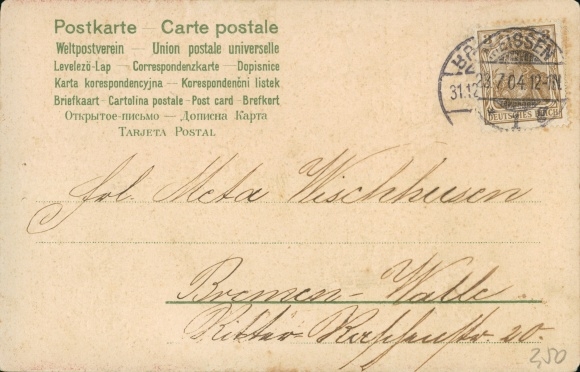 Postkarte — Carte postale
Weltpostverein — Union postale universelle
Levelező-Lap — Correspondenzkarte — Dopisnice
Karta korespondencyjna — Korespondenčni listek
Briefkaart - Cartolina postale - Post card - Brefkort
Открытое-письмо — Дописна Карта
TARJETA POSTAL
31.12
23.7.04 12-1N.
DEUTSCHES REICH
frl. Meta Wischhusen
Bremen-Walle
Ritter-Raschenstr. 20.
2,50